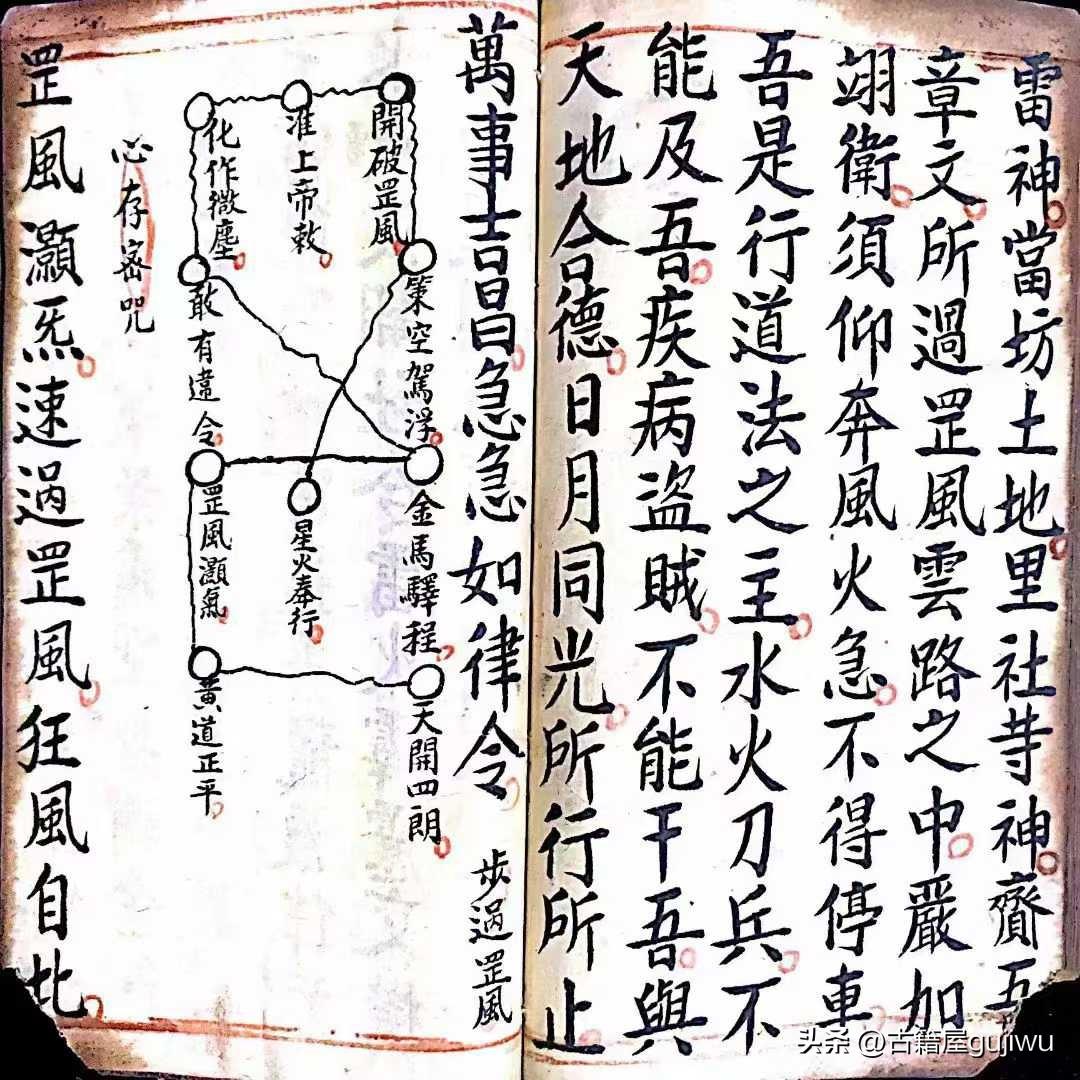 雷神當坊土地里社等神齎五
章文所過罡風雲路之中嚴加
翊衛須仰奔風火急不得停車
吾是行道法之主水火刀兵不
能及吾疾病盜賊不能干吾與
天地合德日月同光所行所止
萬事吉昌急急如律令
步過罡風
開破罡風
准上帝敕
化作微塵
策空駕浮
敢有違令
金馬驛程
星火奉行
罡風灝氣
天開四朗
黃道正平
心存密咒
罡風灝炁速過罡風狂風自
头条 @古籍屋gujiwu